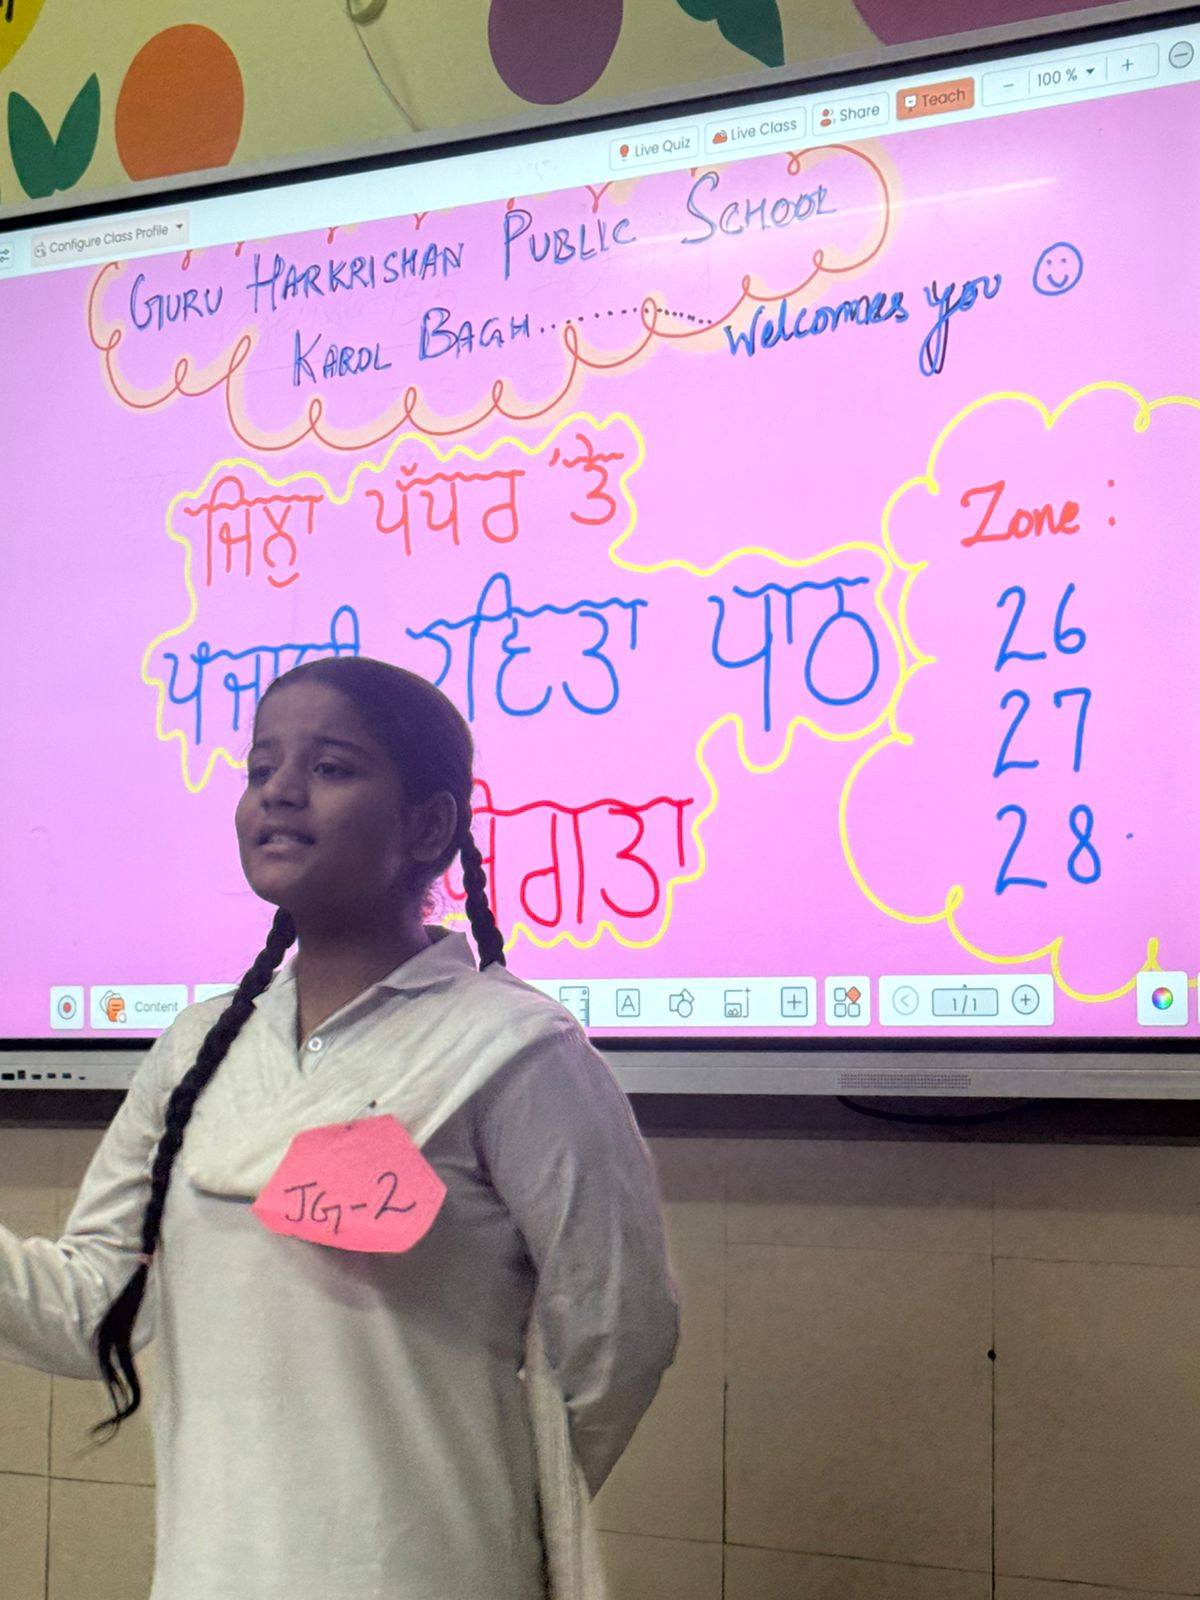 100 %
Live Quiz Live Class Share Teach
Configure Class Profile
GURU HARKRISHAN PUBLIC SCHOOL
KAROL BAGH............ Welcomes you
ਪੱਧਰ 'ਤੇ
ਕਵਿਤਾ ਪਾਠ
Zone :
26
27
28
Content
A
1/1
JG-2